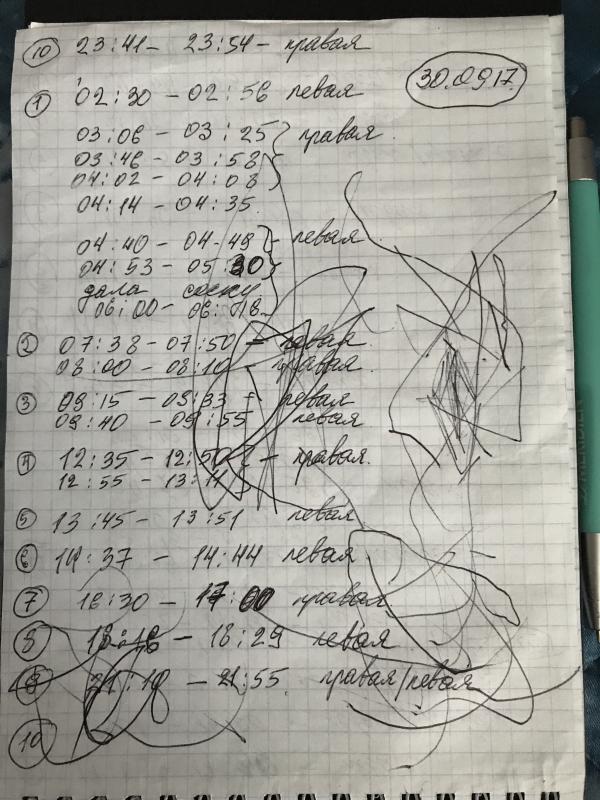 10 23:41 - 23:54 - правая
30.09.17.
1 02:30 - 02:56 левая
03:06 - 03:25 правая.
03:46 - 03:58
04:02 - 04:08
04:14 - 04:35
04:40 - 04:49 - левая
04:53 - 05:30
дала соску
06:00 - 06:18
2 07:38 - 07:50 - левая
08:00 - 08:10 - правая.
3 09:15 - 09:33 - левая
09:40 - 09:55 левая
4 12:35 - 12:50 - правая.
12:55 - 13:11
5 13:45 - 13:51 левая
6 14:37 - 14:44 левая
7 16:30 - 17:00 правая
8 18:18 - 18:29 левая
9 21:10 - 21:55 правая/левая
10